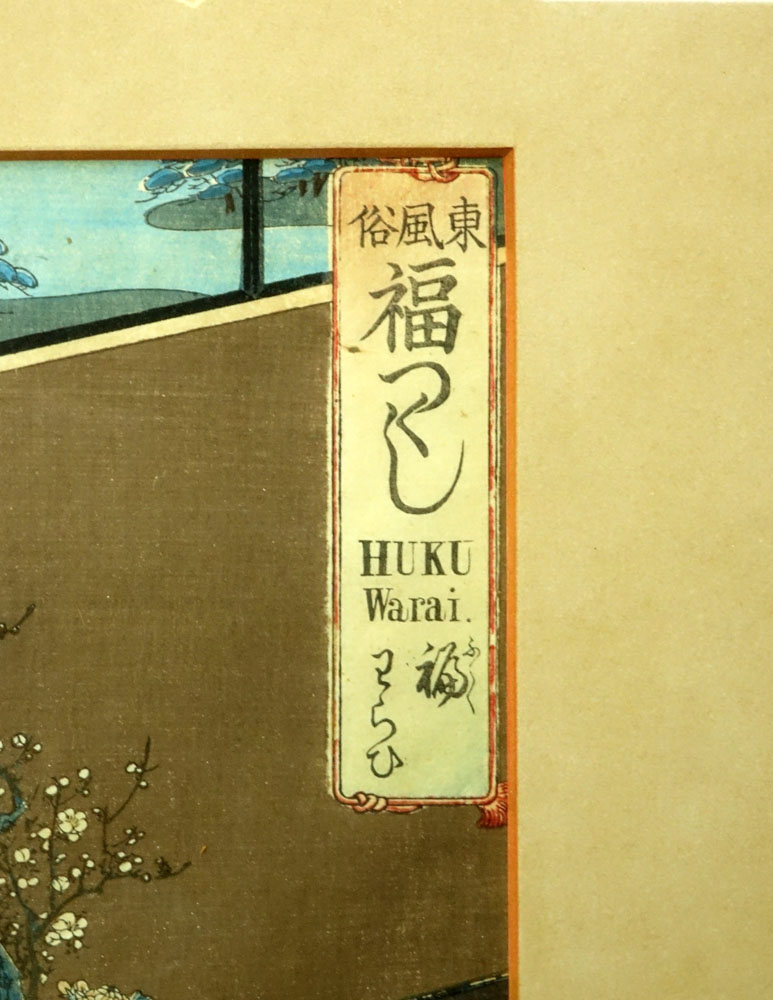 東風俗
福つくし
HUKU
Warai.
福ふく
わらひ